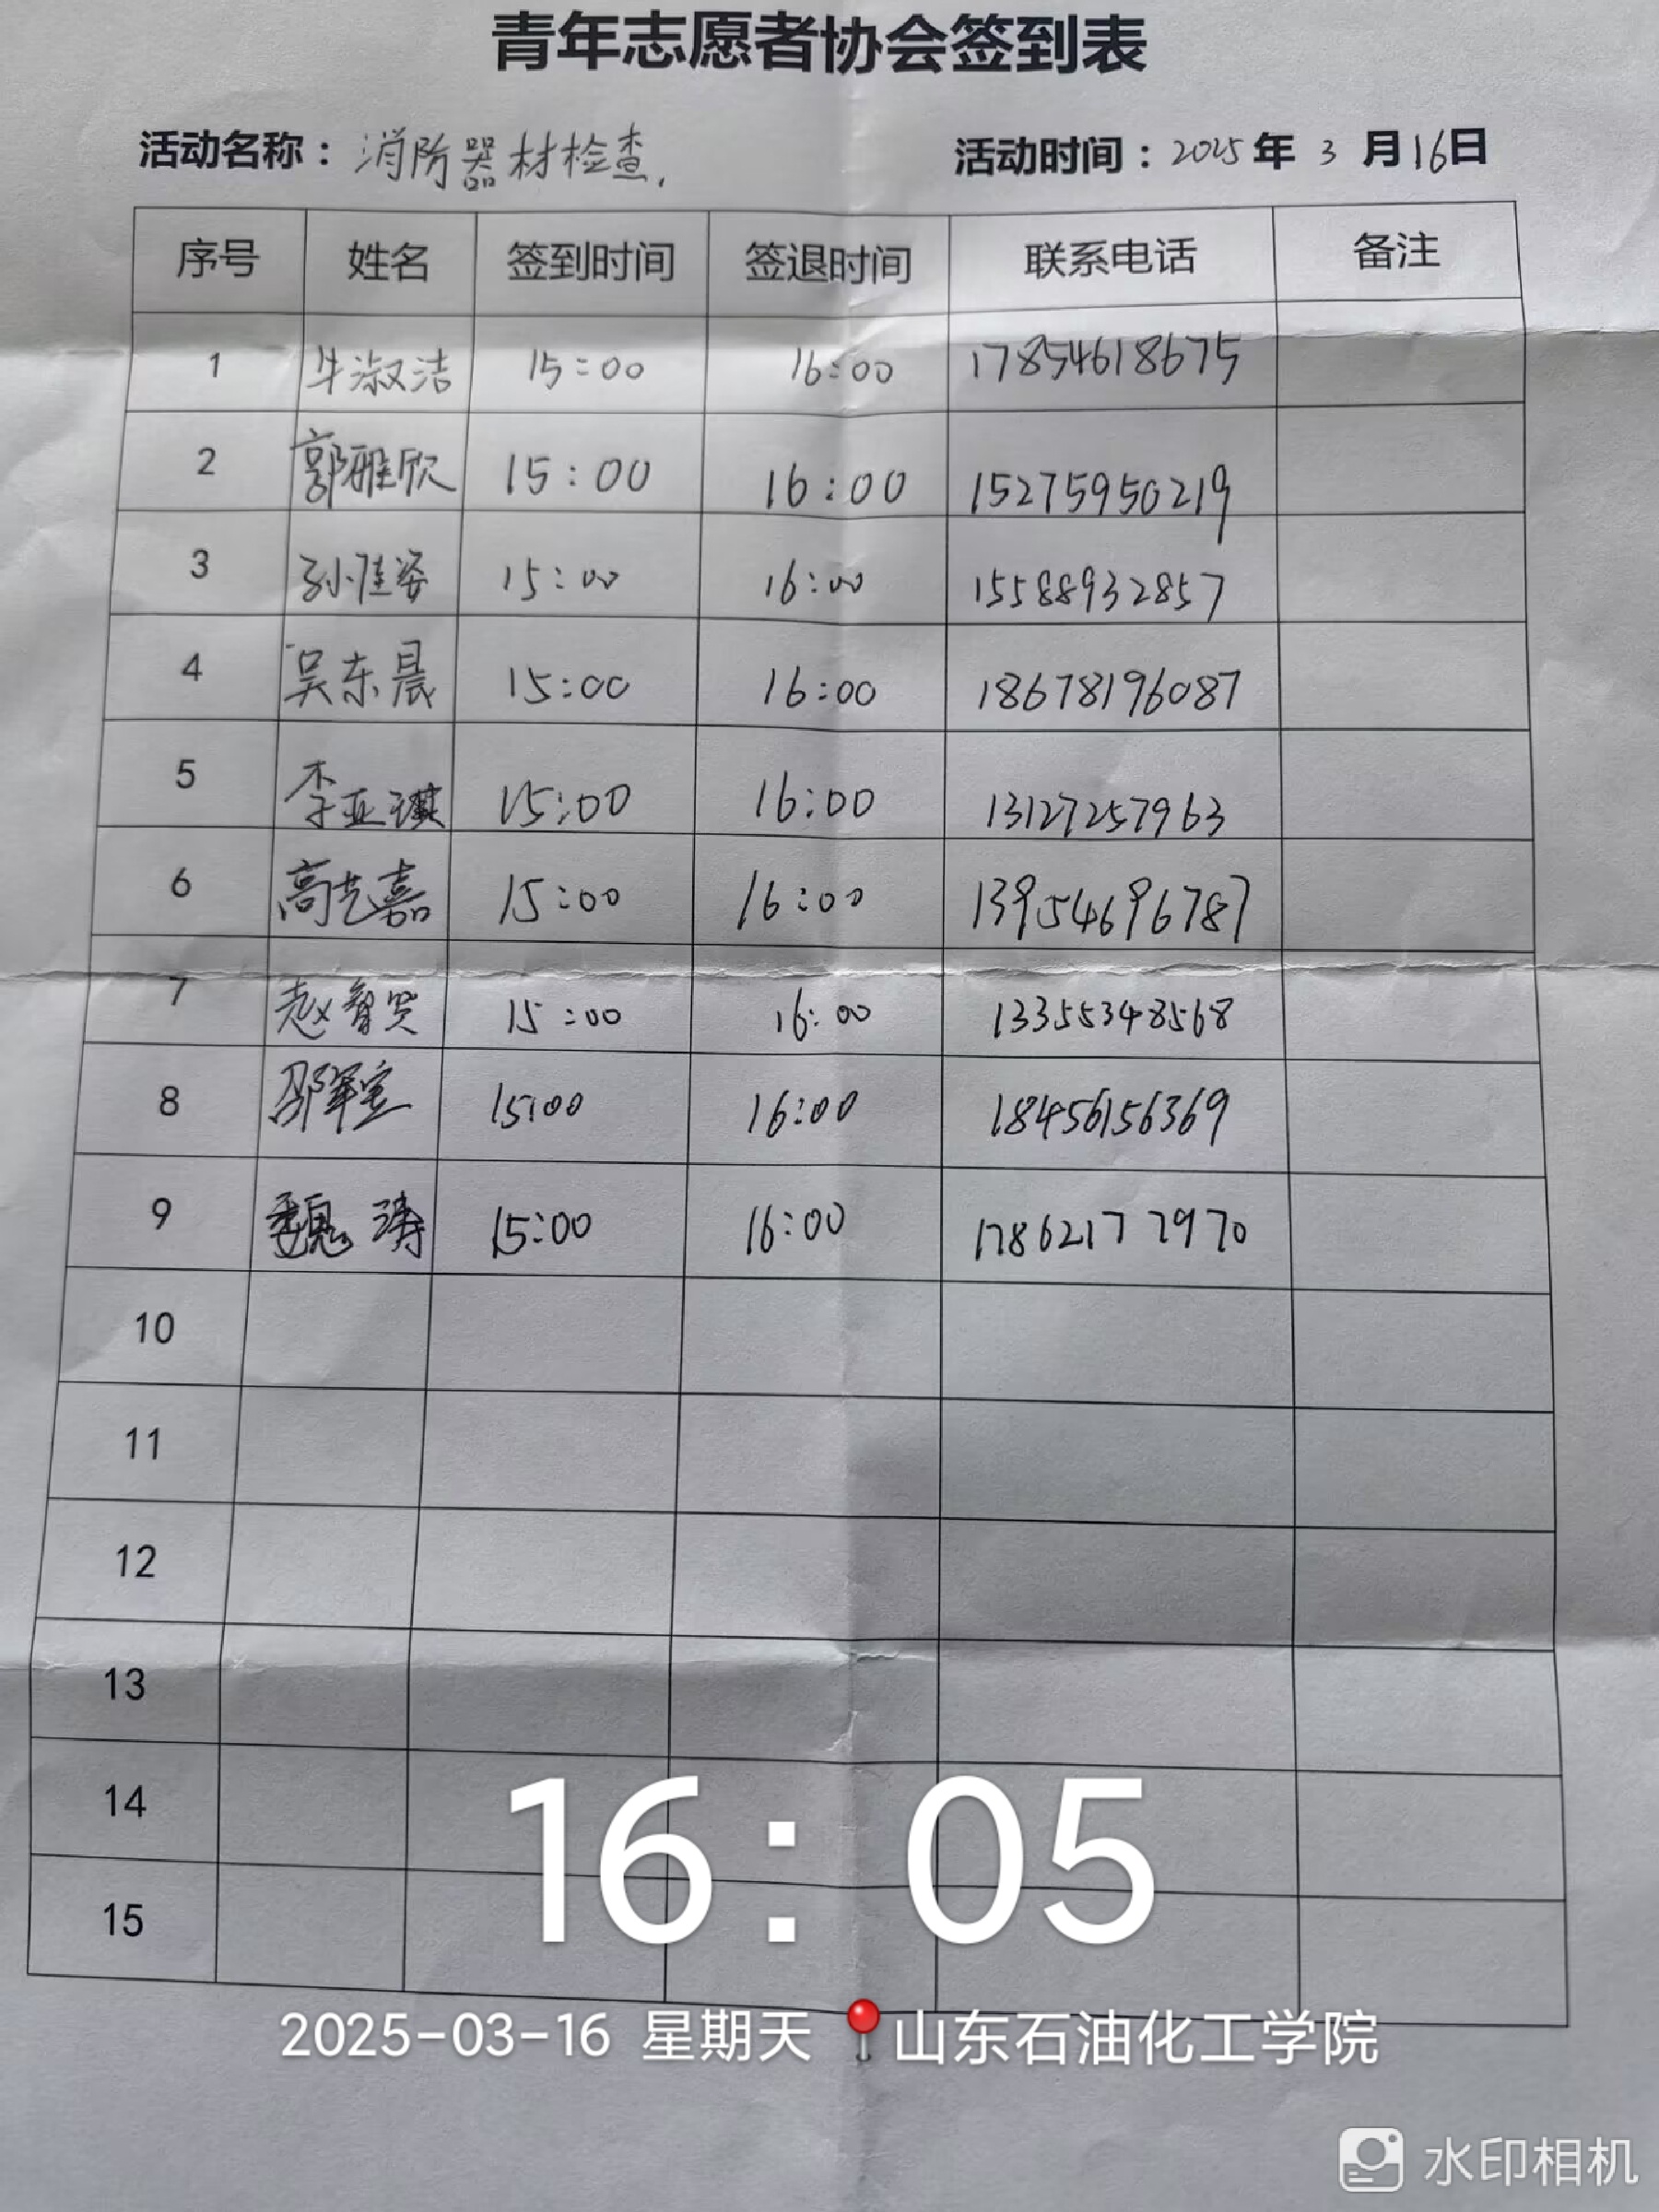 青年志愿者协会签到表
活动名称：消防器材检查. 活动时间：2025年 3 月16日
序号 姓名 签到时间 签退时间 联系电话 备注
1 牛淑洁 15:00 16:00 17854618675
2 郭雅欣 15:00 16:00 15275950219
3 孙佳姿 15:00 16:00 15588932857
4 吴东晨 15:00 16:00 18678196087
5 李亚琪 15:00 16:00 13127257963
6 高艺嘉 15:00 16:00 13954696787
7 赵智 15:00 16:00 13355348568
8 邵 15:00 16:00 18456156369
9 魏涛 15:00 16:00 17862177970
10
11
12
13
14
15
16:05
2025-03-16 星期天 山东石油化工学院
水印相机